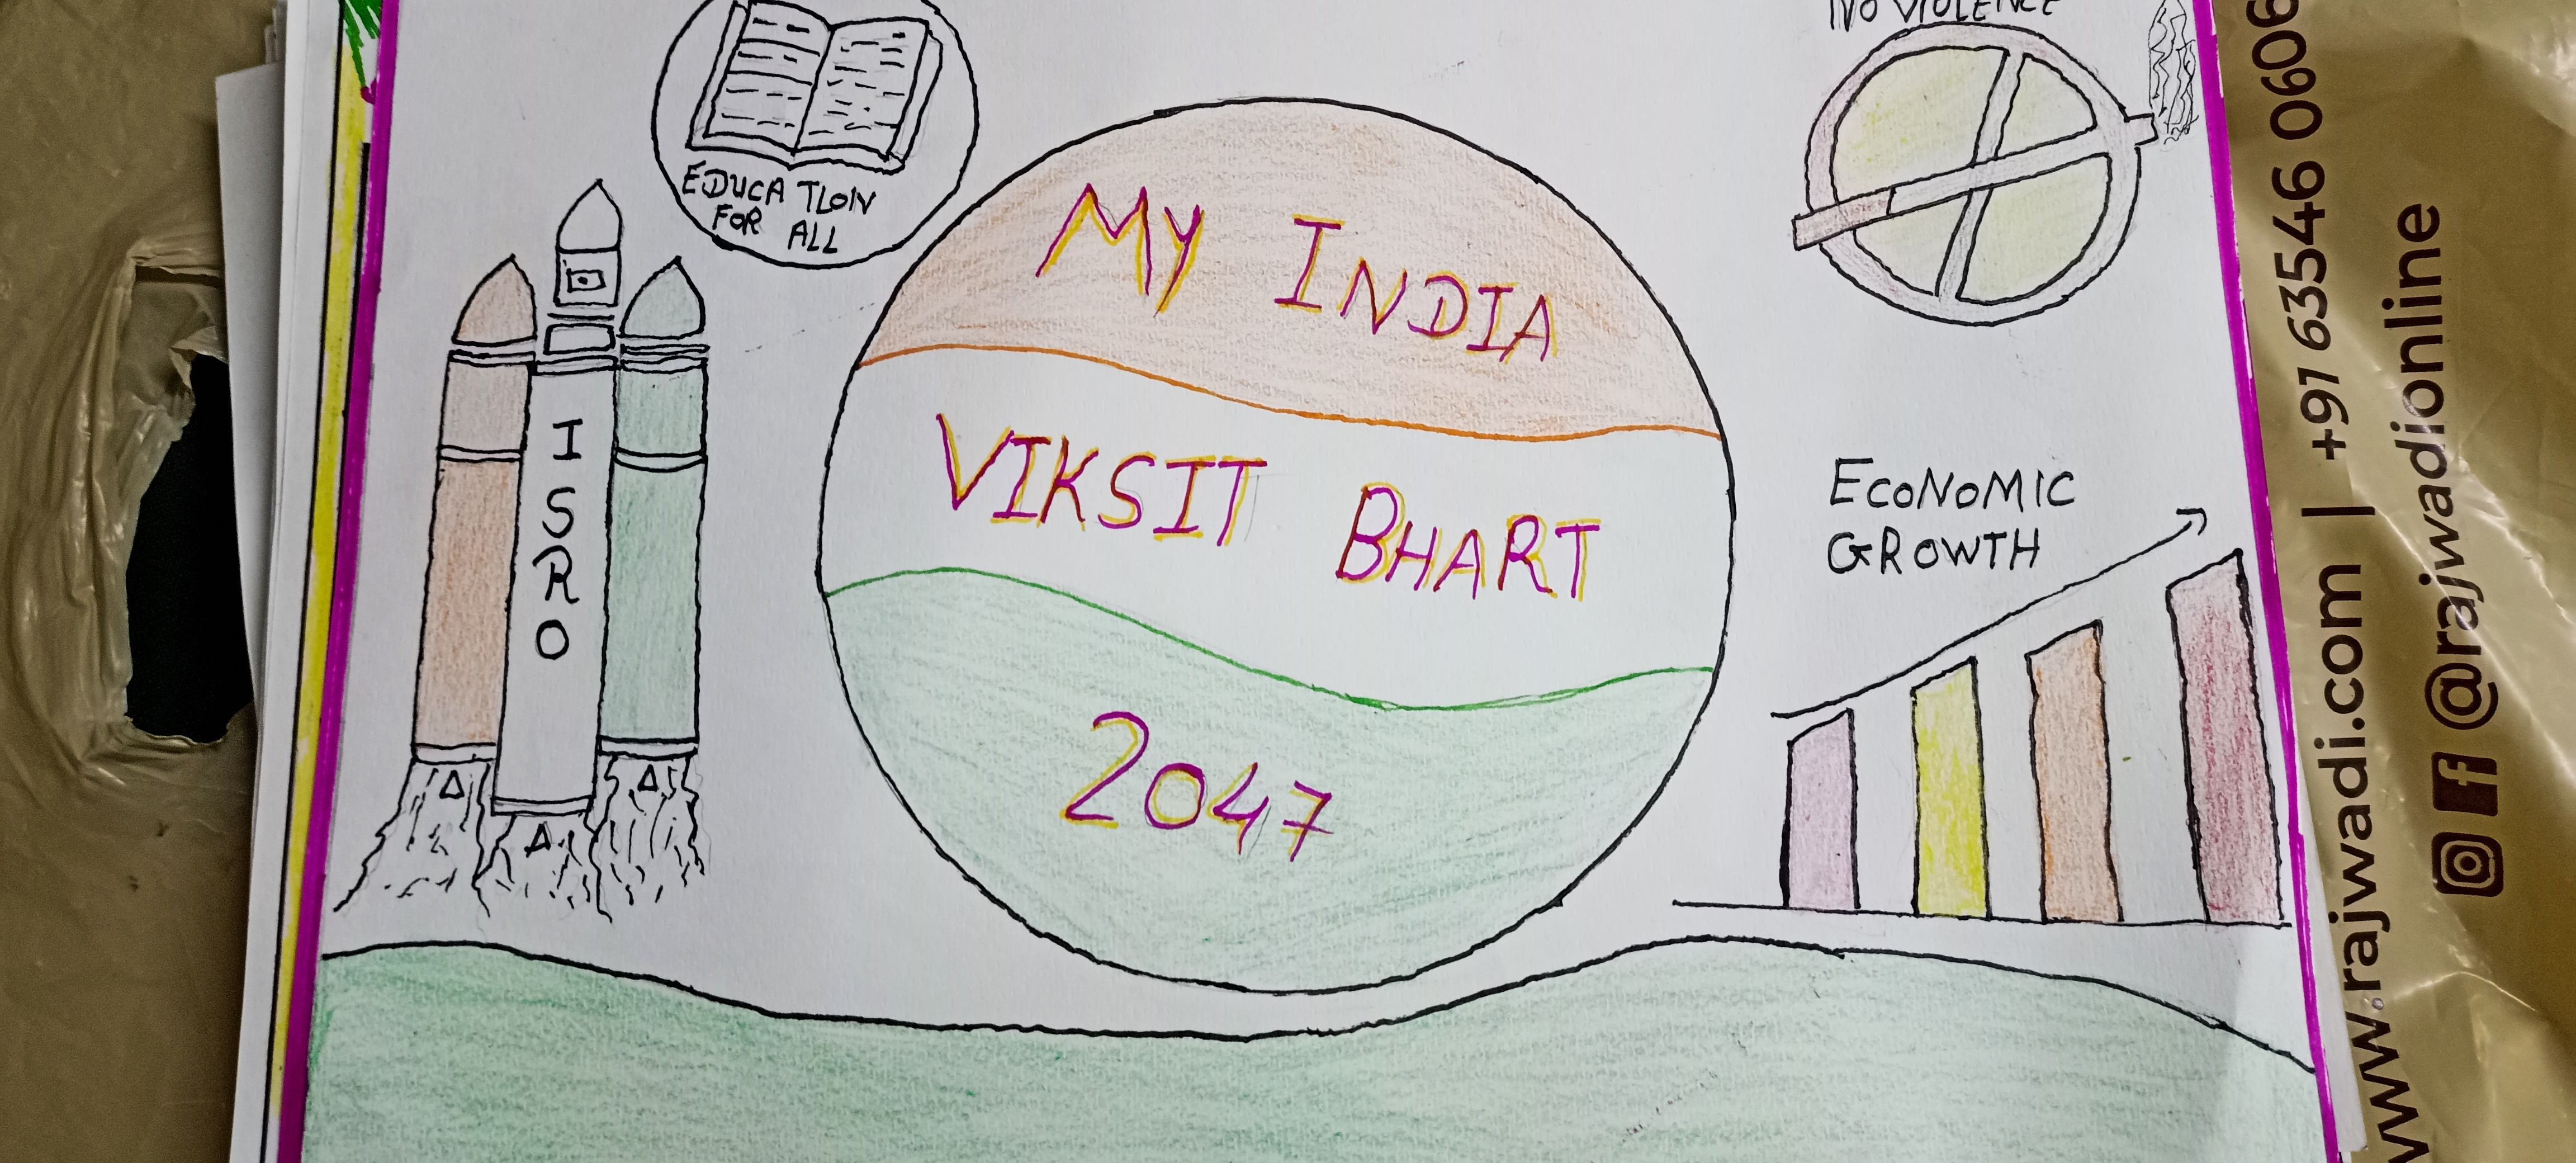 NO VIOLENCE
EDUCATION
FOR ALL
MY INDIA
VIKSIT BHART
2047
ISRO
ECONOMIC
GROWTH
www.rajwadi.com | +91 63546 0606
@rajwadionline